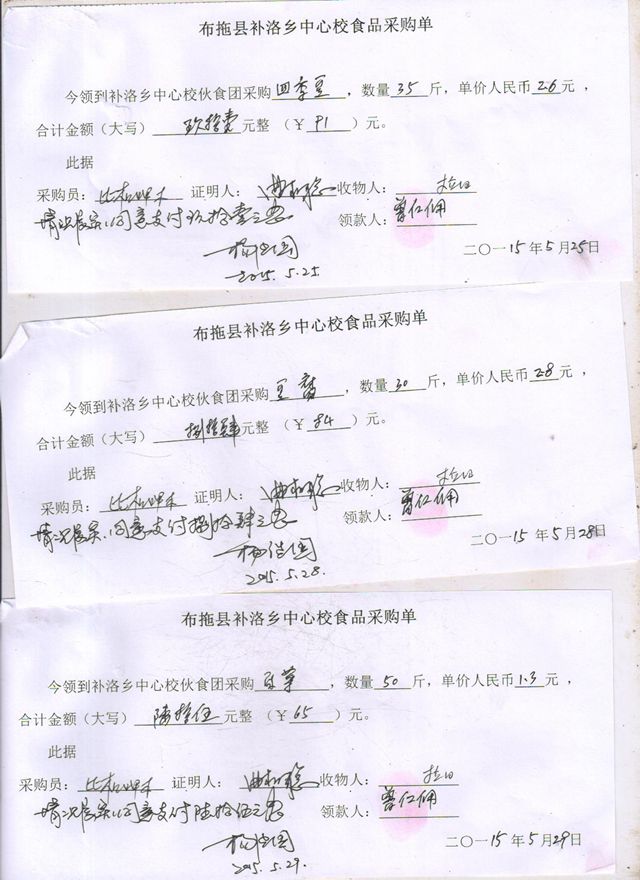 布拖县补洛乡中心校食品采购单
今领到补洛乡中心校伙食团采购四季豆，数量35斤，单价人民币2.6元，
合计金额（大写）玖拾壹元整（￥91）元。
此据
采购员： 证明人： 收物人：拉曰
情况属实，同意支付玖拾壹元 领款人：曾仁佣
2015.5.25 二〇一15年5月25日
布拖县补洛乡中心校食品采购单
今领到补洛乡中心校伙食团采购豆腐，数量30斤，单价人民币2.8元，
合计金额（大写）捌拾肆元整（￥84）元。
此据
采购员： 证明人： 收物人：拉曰
情况属实，同意支付捌拾肆元 领款人：曾仁佣
2015.5.28. 二〇一15年5月28日
布拖县补洛乡中心校食品采购单
今领到补洛乡中心校伙食团采购，数量50斤，单价人民币1.3元，
合计金额（大写）陆拾伍元整（￥65）元。
此据
采购员： 证明人： 收物人：拉曰
情况属实，同意支付陆拾伍元 领款人：曾仁佣
2015.5.29. 二〇一15年5月29日